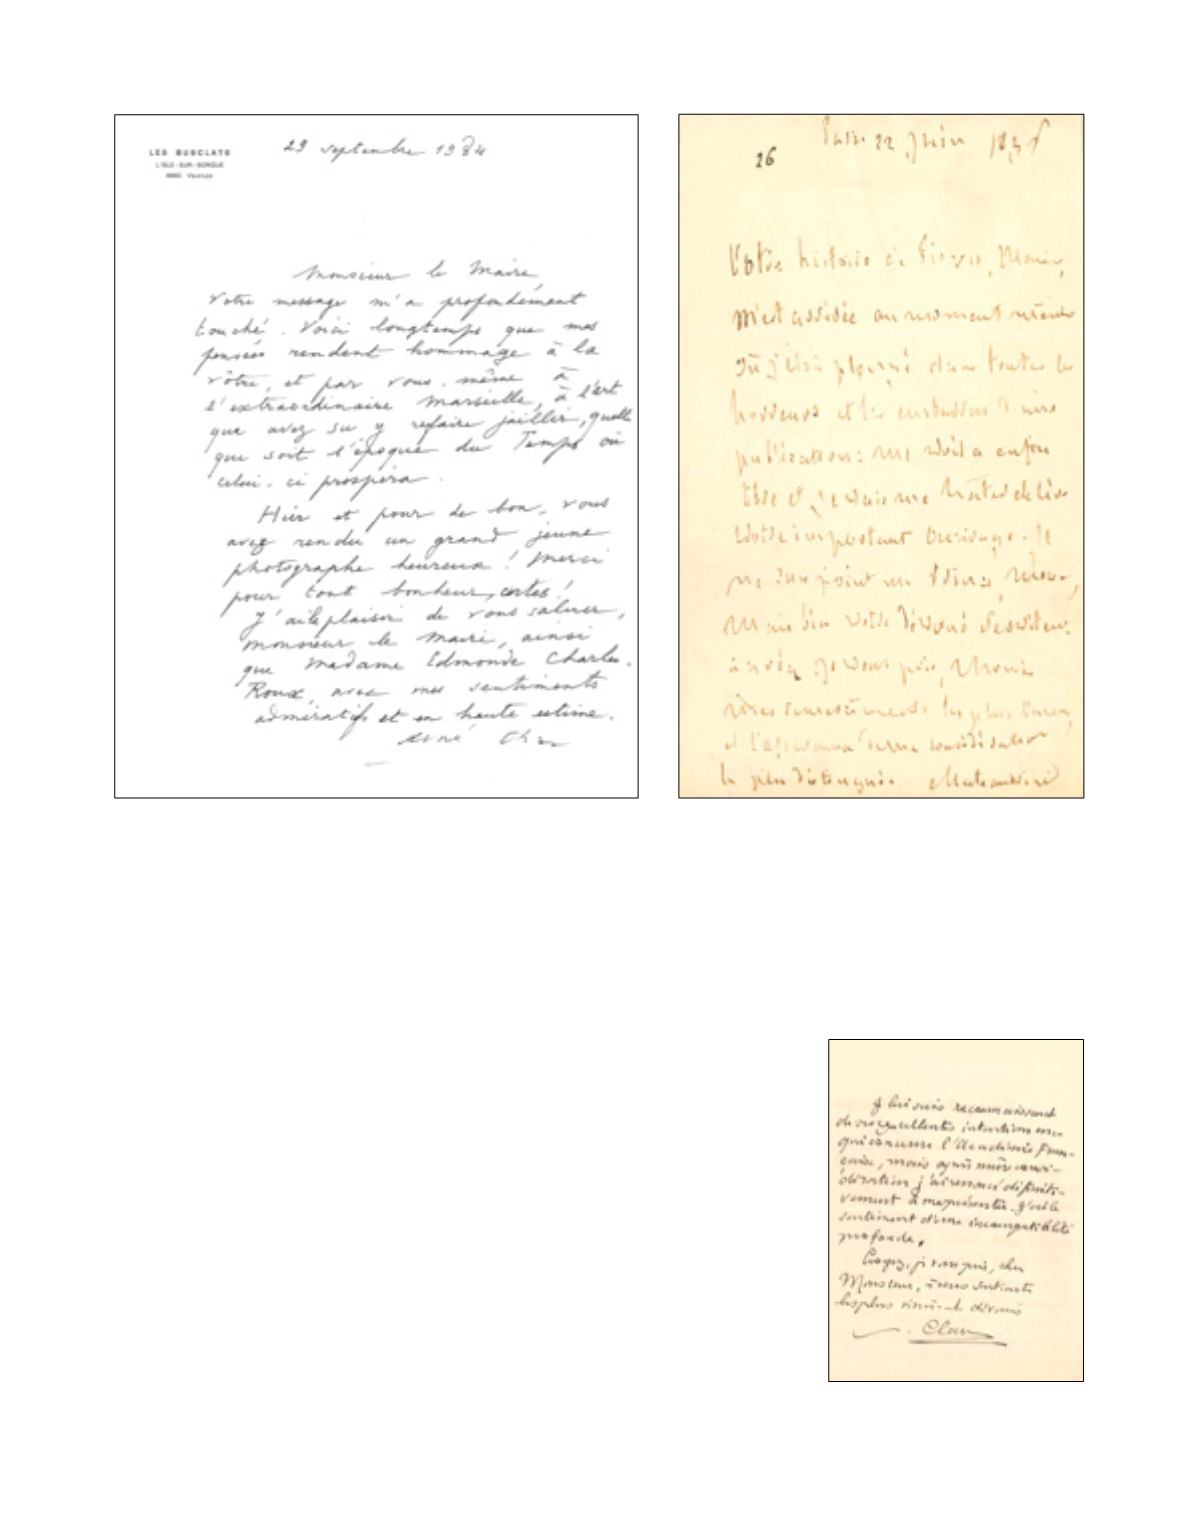 LES BUSCLATS
L'ISLE-SUR-SORGUE
Vaucluse
29 septembre 1984
Monsieur le Maire,
Votre message m'a profondément
touché. Voici longtemps que mes
pensées rendent hommage à la
vôtre, et par vous-même à
l'extraordinaire Marseille, à l'art
que avez su y refaire jaillir, quelle
que soit l'époque du Temps où
celui-ci prospéra.
Hier et pour de bon, vous
avez rendu un grand jeune
photographe heureux ! Merci
pour tout bonheur, certes !
J'ai le plaisir de vous saluer,
monsieur le Maire, ainsi
que Madame Edmonde Charles-
Roux, avec mes sentiments
admiratifs et en haute estime.
René Char
26
22 Juin
Votre histoire
m'est au moment même
où plongé dans toutes les
et les embarras
publication : me voilà enfin
libre et je vais me hâter de lire
votre important ouvrage. Je
ne point un
Mais bien votre dévoué serviteur.
Je vous prie,
les plus
et l'assurance de ma considération
la plus distinguée.
suis reconnaissant
de ses excellentes intentions en ce
qui concerne l'Académie fran-
çaise, mais après mûre consi-
dération j'ai renoncé définiti-
vement à me présenter. J'ai le
sentiment d'une incompatibilité
profonde.
Croyez, je vous prie, cher
Monsieur, à mes sentiments
les plus dévoués